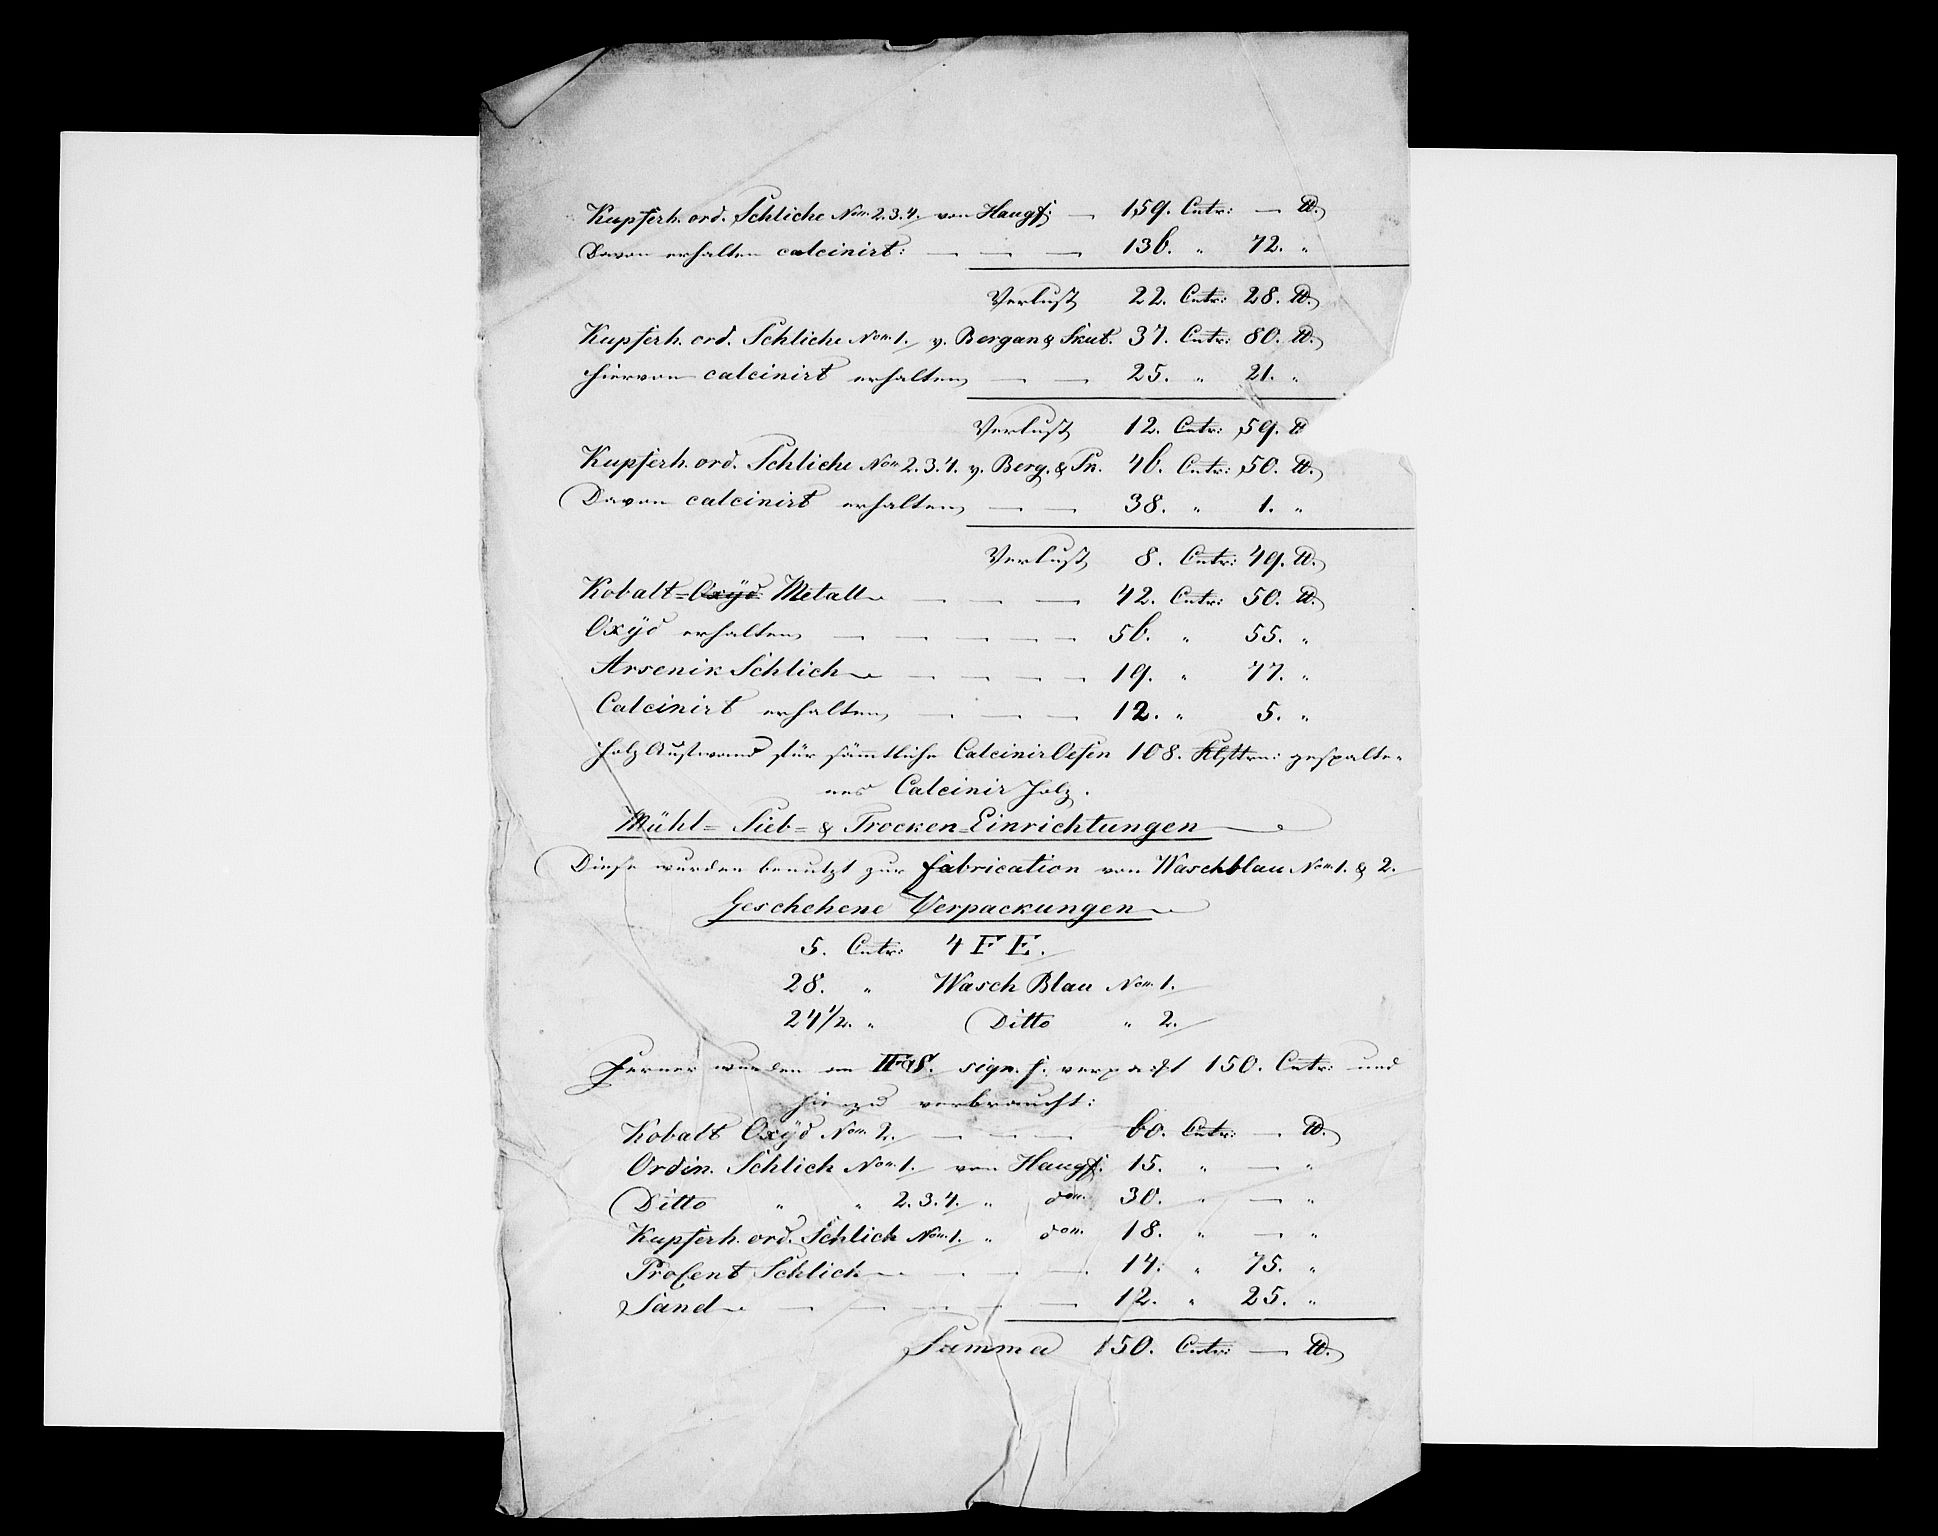 Kupferh. ord. Schliche Nom. 2. 3. 4. von Haugf: — 159. Cntr: — ℔.
Davon erhalten calcinirt: — — — 136. " 72. "
Verlust 22. Cntr: 28. ℔.
Kupferh. ord. Schliche Nom. 1. v. Bergan & Skut. 37. Cntr: 80. ℔.
hiervon calcinirt erhalten — — 25. " 21. "
Verlust 12. Cntr: 59. ℔
Kupferh. ord. Schliche Nom. 2. 3. 4. v. Berg. & Sn. 46. Cntr: 50. ℔.
Davon calcinirt erhalten — — 38. " 1. "
Verlust 8. Cntr: 49. ℔.
Kobalt=Oxÿd Metall — — — 42. Cntr: 50. ℔.
Oxÿd erhalten — — — — — 56. " 55. "
Arsenik Schlich — — — — 19. " 77. "
Calcinirt erhalten — — — 12. " 5. "
Holz Aufwand für sämtliche Calcinir Oefen 108. Klftrn: gespalte-
nes Calcinir Holz.
Mühl= Sieb= & Trocken=Einrichtungen
Diese wurden benutzt zur Fabrication von Waschblau Nom. 1. & 2.
Geschehene Verpackungen
5. Cntr: 4 F E.
28. " Wasch Blau Nom. 1.
24 1/2. " Ditto " 2.
Ferner wurden an FS. sign. f. verpackt 150. Cntr: und
hierzu verbraucht:
Kobalt Oxÿd Nom. 2. — — — 60. Cntr: — ℔.
Ordin. Schlich Nom. 1. von Haugf. 15. " — "
Ditto " " 2. 3. 4. " dom. 30. " — "
Kupferh. ord. Schlich Nom. 1. " dom. 18. " — "
ProCent Schlich — — — 14. " 75. "
Sand — — — — — 12. " 25. "
Summa 150. Cntr: — ℔.